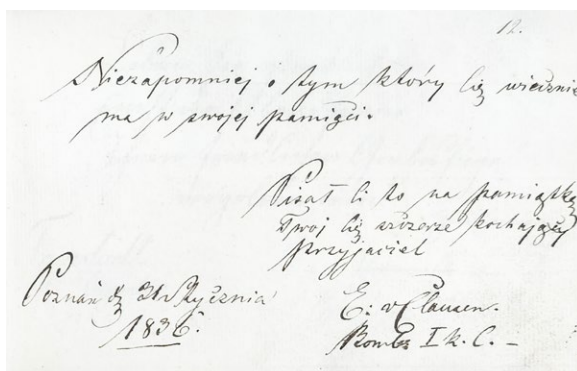 12.
Niezapomniej o tym który Cię wiecznie
ma w swojej pamięci.
Pisał Ci to na pamiątkę
Twoj Cię szczerze kochający
przyjaciel
Poznań 31 Stycznia
1836.
E: v Clausen.
I k. C. –